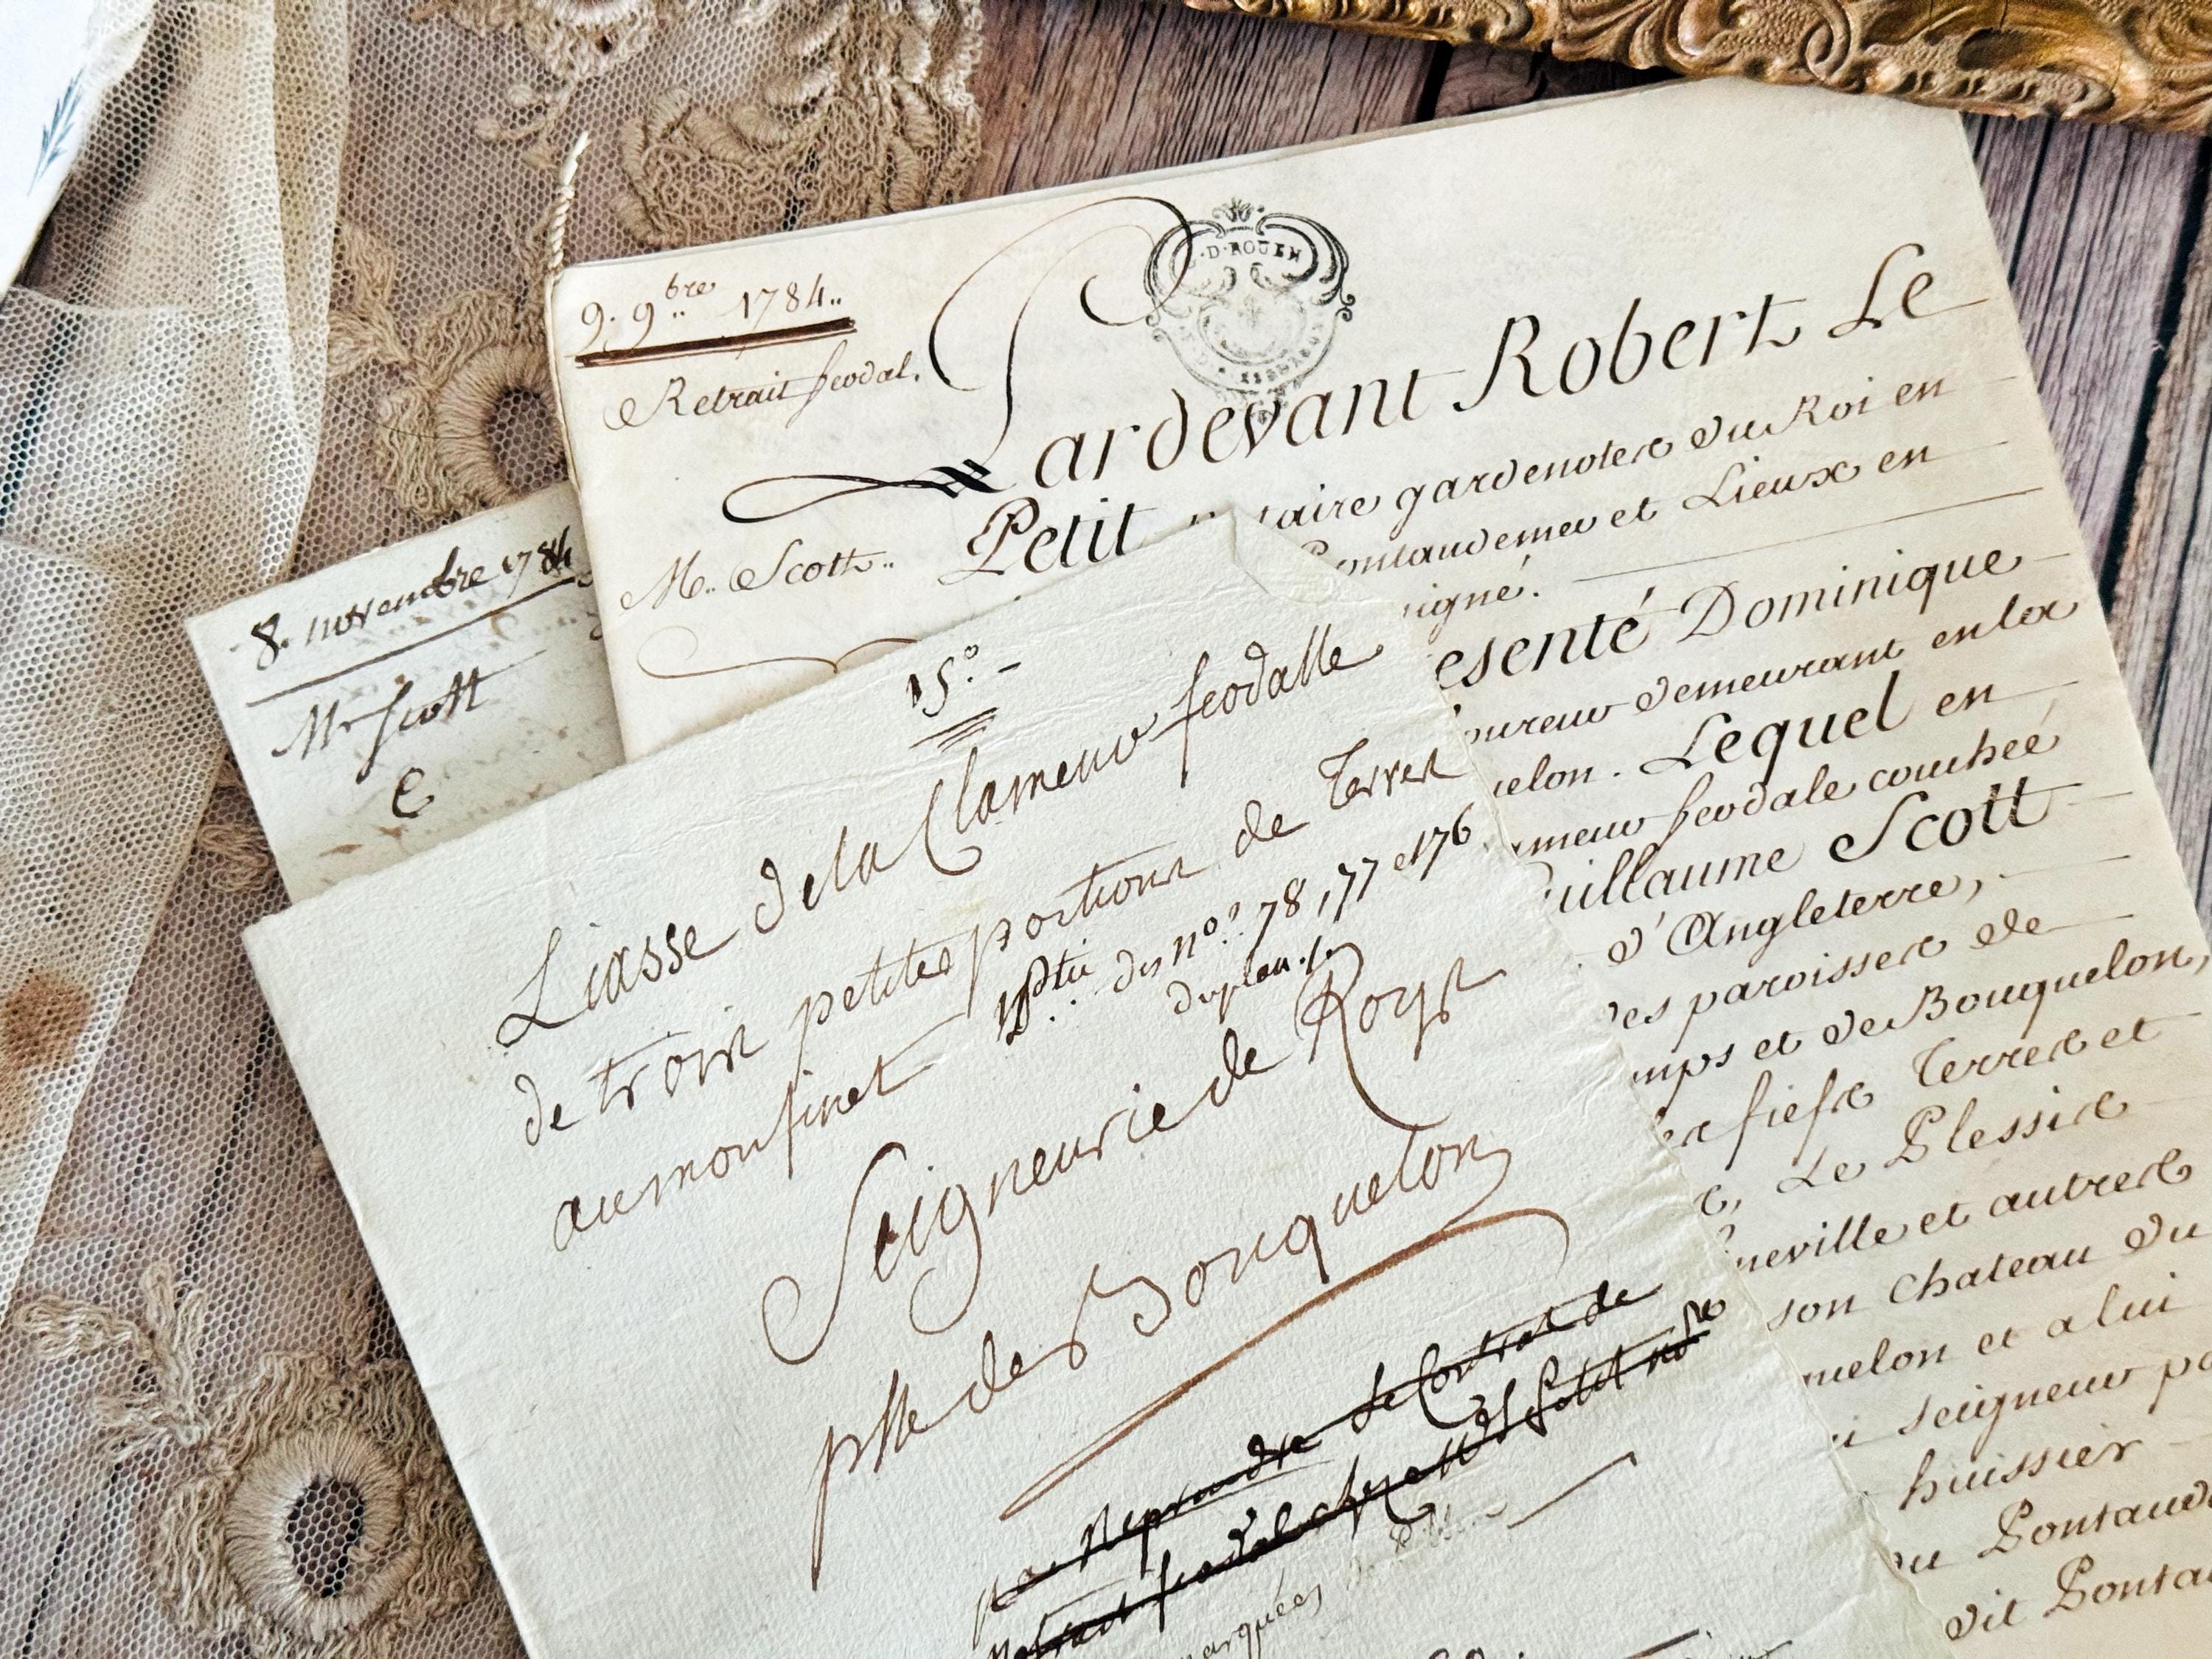 9. 9bre 1784..
Retrait feodal.
G. D. ROUEN
Pardevant Robert Le
Petit aire gardenotes du Roi en
M. Scott.. Pontaudemer et Lieux en
signé.
esenté Dominique
oureur demeurant en la
elon. Lequel en
ameur feodale couchée
Guillaume Scott
d'Angleterre,
des paroisses de
mps et de Bouquelon,
les fiefs Terres et
Le Plessis
neville et autres
son Chateau du
uelon et a lui
seigneur po
huissier
au Pontaud
dit Pontau
8. novembre 1784
Mr Scott
C
15°.
Liasse de la Clameur feodalle
de trois petites portions de Terres
au monfinet Ptie des nos. 78, 77 et 76
du plan
Seigneurie de Roys
psse de Bouquelon
Reprendre le Contrat de
feodal chez Petit
marquées